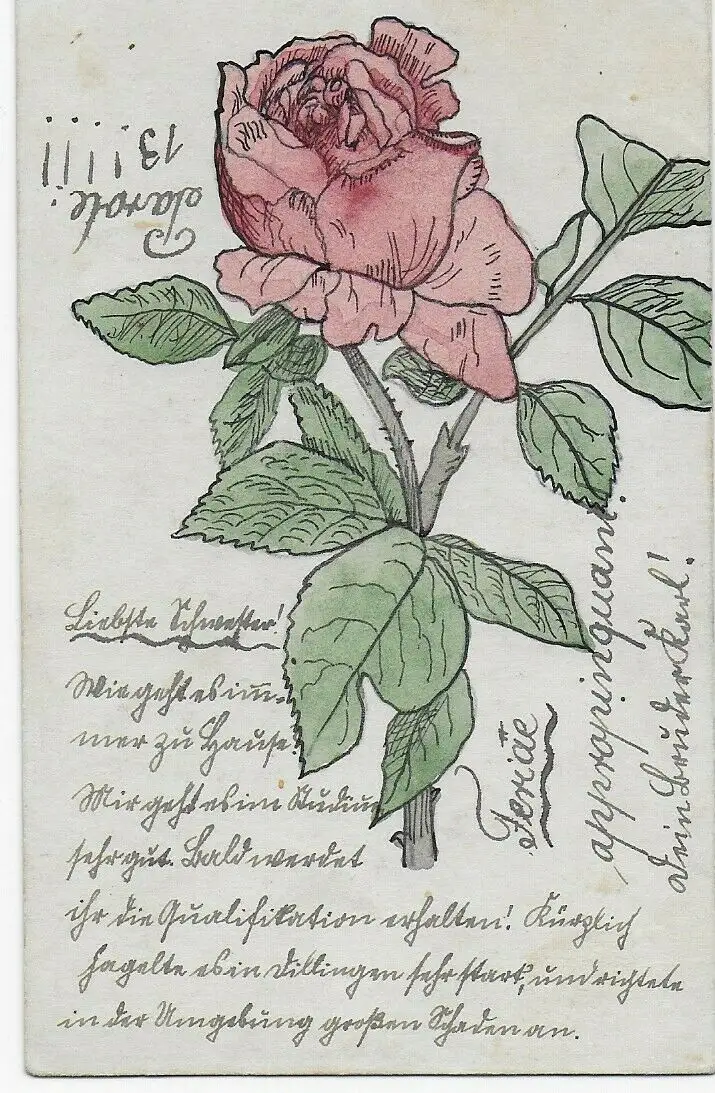 Parole:
13!!!!
Liebste Schwester!
Wie geht es im-
mer zu Hause?
Mir geht es im Studium
sehr gut. Bald werdet
ihr die Qualifikation erhalten! Kürzlich
hagelte es in Dillingen sehr stark, und richtete
in der Umgebung großen Schaden an.
Feriae
appropinquant.
Dein Bruder Karl!